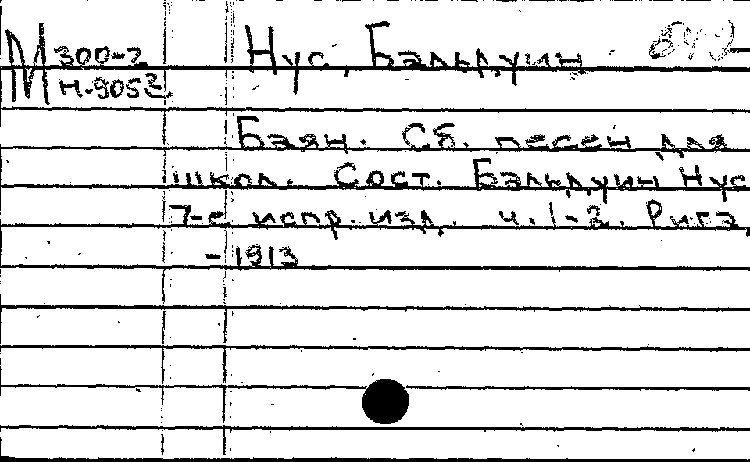 М 300-2
Н-905²
Нус, Бальдуин
Баян. Сб. песен для
школ. Сост. Бальдуин Нус
7-е испр. изд. ч. 1-2. Рига,
- 1913